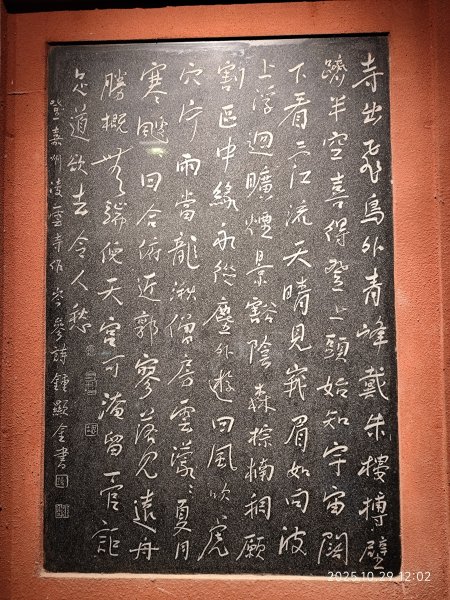 寺出飛鳥外青峰戴朱樓搏壁
躋半空喜得登上頭始知宇宙闊
下看三江流天晴見峩眉如向波
上浮迥曠煙景豁陰森棕楠稠願
割區中緣永從塵外遊回風吹虎
穴片雨當龍湫僧房雲濛〻夏月
寒颼〻回合俯近郭寥落見遠舟
勝概無端倪天宮可淹留一官詎
足道欲去令人愁
登嘉州凌雲寺作 岑參詩 鍾顯金書
2025.10.29 12:02